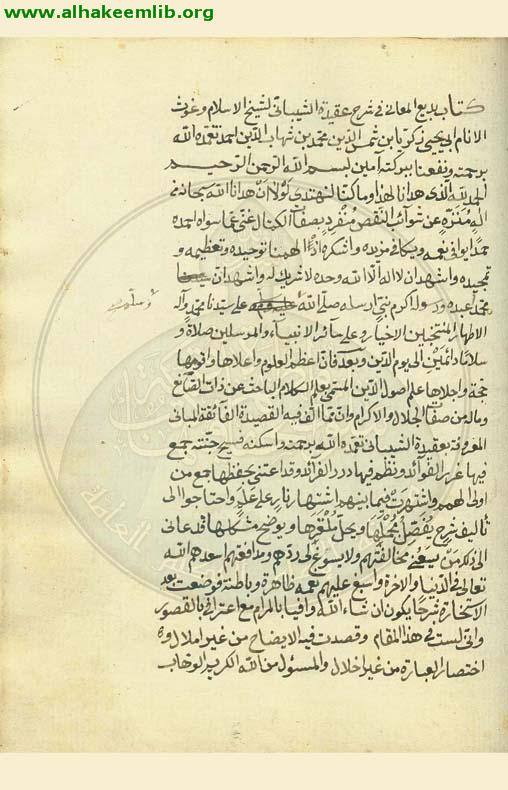 www.alhakeemlib.org
كتاب بديع المعاني في شرح عقيدة الشيباني لشيخ الاسلام وغوث
الانام ابي يحيى زكريا بن شمس الدين محمد بن شهاب الدين احمد تغمده الله
برحمته ونفعنا ببركته آمين بسم الله الرحمن الرحيم
الحمد لله الذي هدانا لهذا وما كنا لنهتدي لولا ان هدانا الله سبحانه من
اله منزه عن شوائب النقص منفرد بصفات الكمال غني عما سواه احمده
حمدا يوافي نعمه ويكافي مزيده واشكره اذ الهمنا توحيده وتعظيمه و
تمجيده واشهد ان لا اله الا الله وحده لا شريك له واشهد ان سيدنا
محمدا عبده ورسوله اكرم نبي ارسله صلى الله على سيدنا محمد واله
وسلم
الاطهار المنتجبين الاخيار وعلى سائر الانبياء والمرسلين صلاة و
سلاما دائمين الى يوم الدين وبعد فان اعظم العلوم واعلاها واقومها
حجة واجلاها علم اصول الدين المسمى بعلم الكلام الباحث عن ذات الصانع
وماله من صفات الجلال والاكرام وان مما الف فيه القصيدة الفائقة المباني
المعروفة بعقيدة الشيباني تغمده الله برحمته واسكنه فسيح جنته جمع
فيها غرر الفوائد ونظم فيها درر الفرائد وقد اعتنى بحفظها جمع من
اولي الهمم واشتهرت فيما بينهم اشتهار نار على علم واحتاجوا الى
تاليف شرح يفصل مجملها ويحل ملغزها ويوضح مشكلها فدعاني
الى ذلك من مخالفتهم ولا يسوغ لي ردهم ومدافعتهم اسعدهم الله
تعالى في الدنيا والاخرة واسبغ عليهم نعمه ظاهرة وباطنة فوضعت بعد
الاستخارة شرحا يكون ان شاء الله وافيا بالمرام مع اعترافي بالقصور
واني لست في هذا المقام وقصدت فيه الايضاح من غير املال و
اختصار العبارة من غير اخلال والمسئول من الله الكريم الوهاب